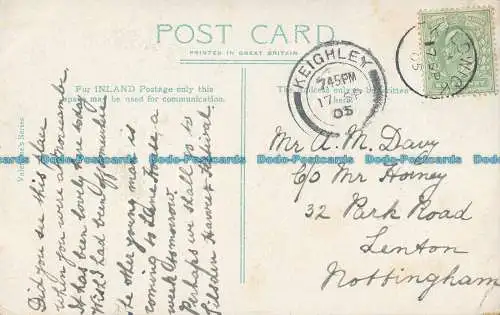 POST CARD
PRINTED IN GREAT BRITAIN
For INLAND Postage only this
space may be used for communication.
The Address only to be written
here.
Valentine's Series
KEIGHLEY
7.45PM
17 SP
05
Did you see this place
when you were at Morecambe
It has been lovely here today
Wish I had been off
the other young man is
coming to
week tomorrow
Perhaps we shall go to
Silsden Harvest Festival.
Mr A. M. Davy
C/o Mr Horney
32 Park Road
Lenton
Nottingham
Dodo-Postcards Dodo-Postcards Dodo-Postcards Dodo-Postcards